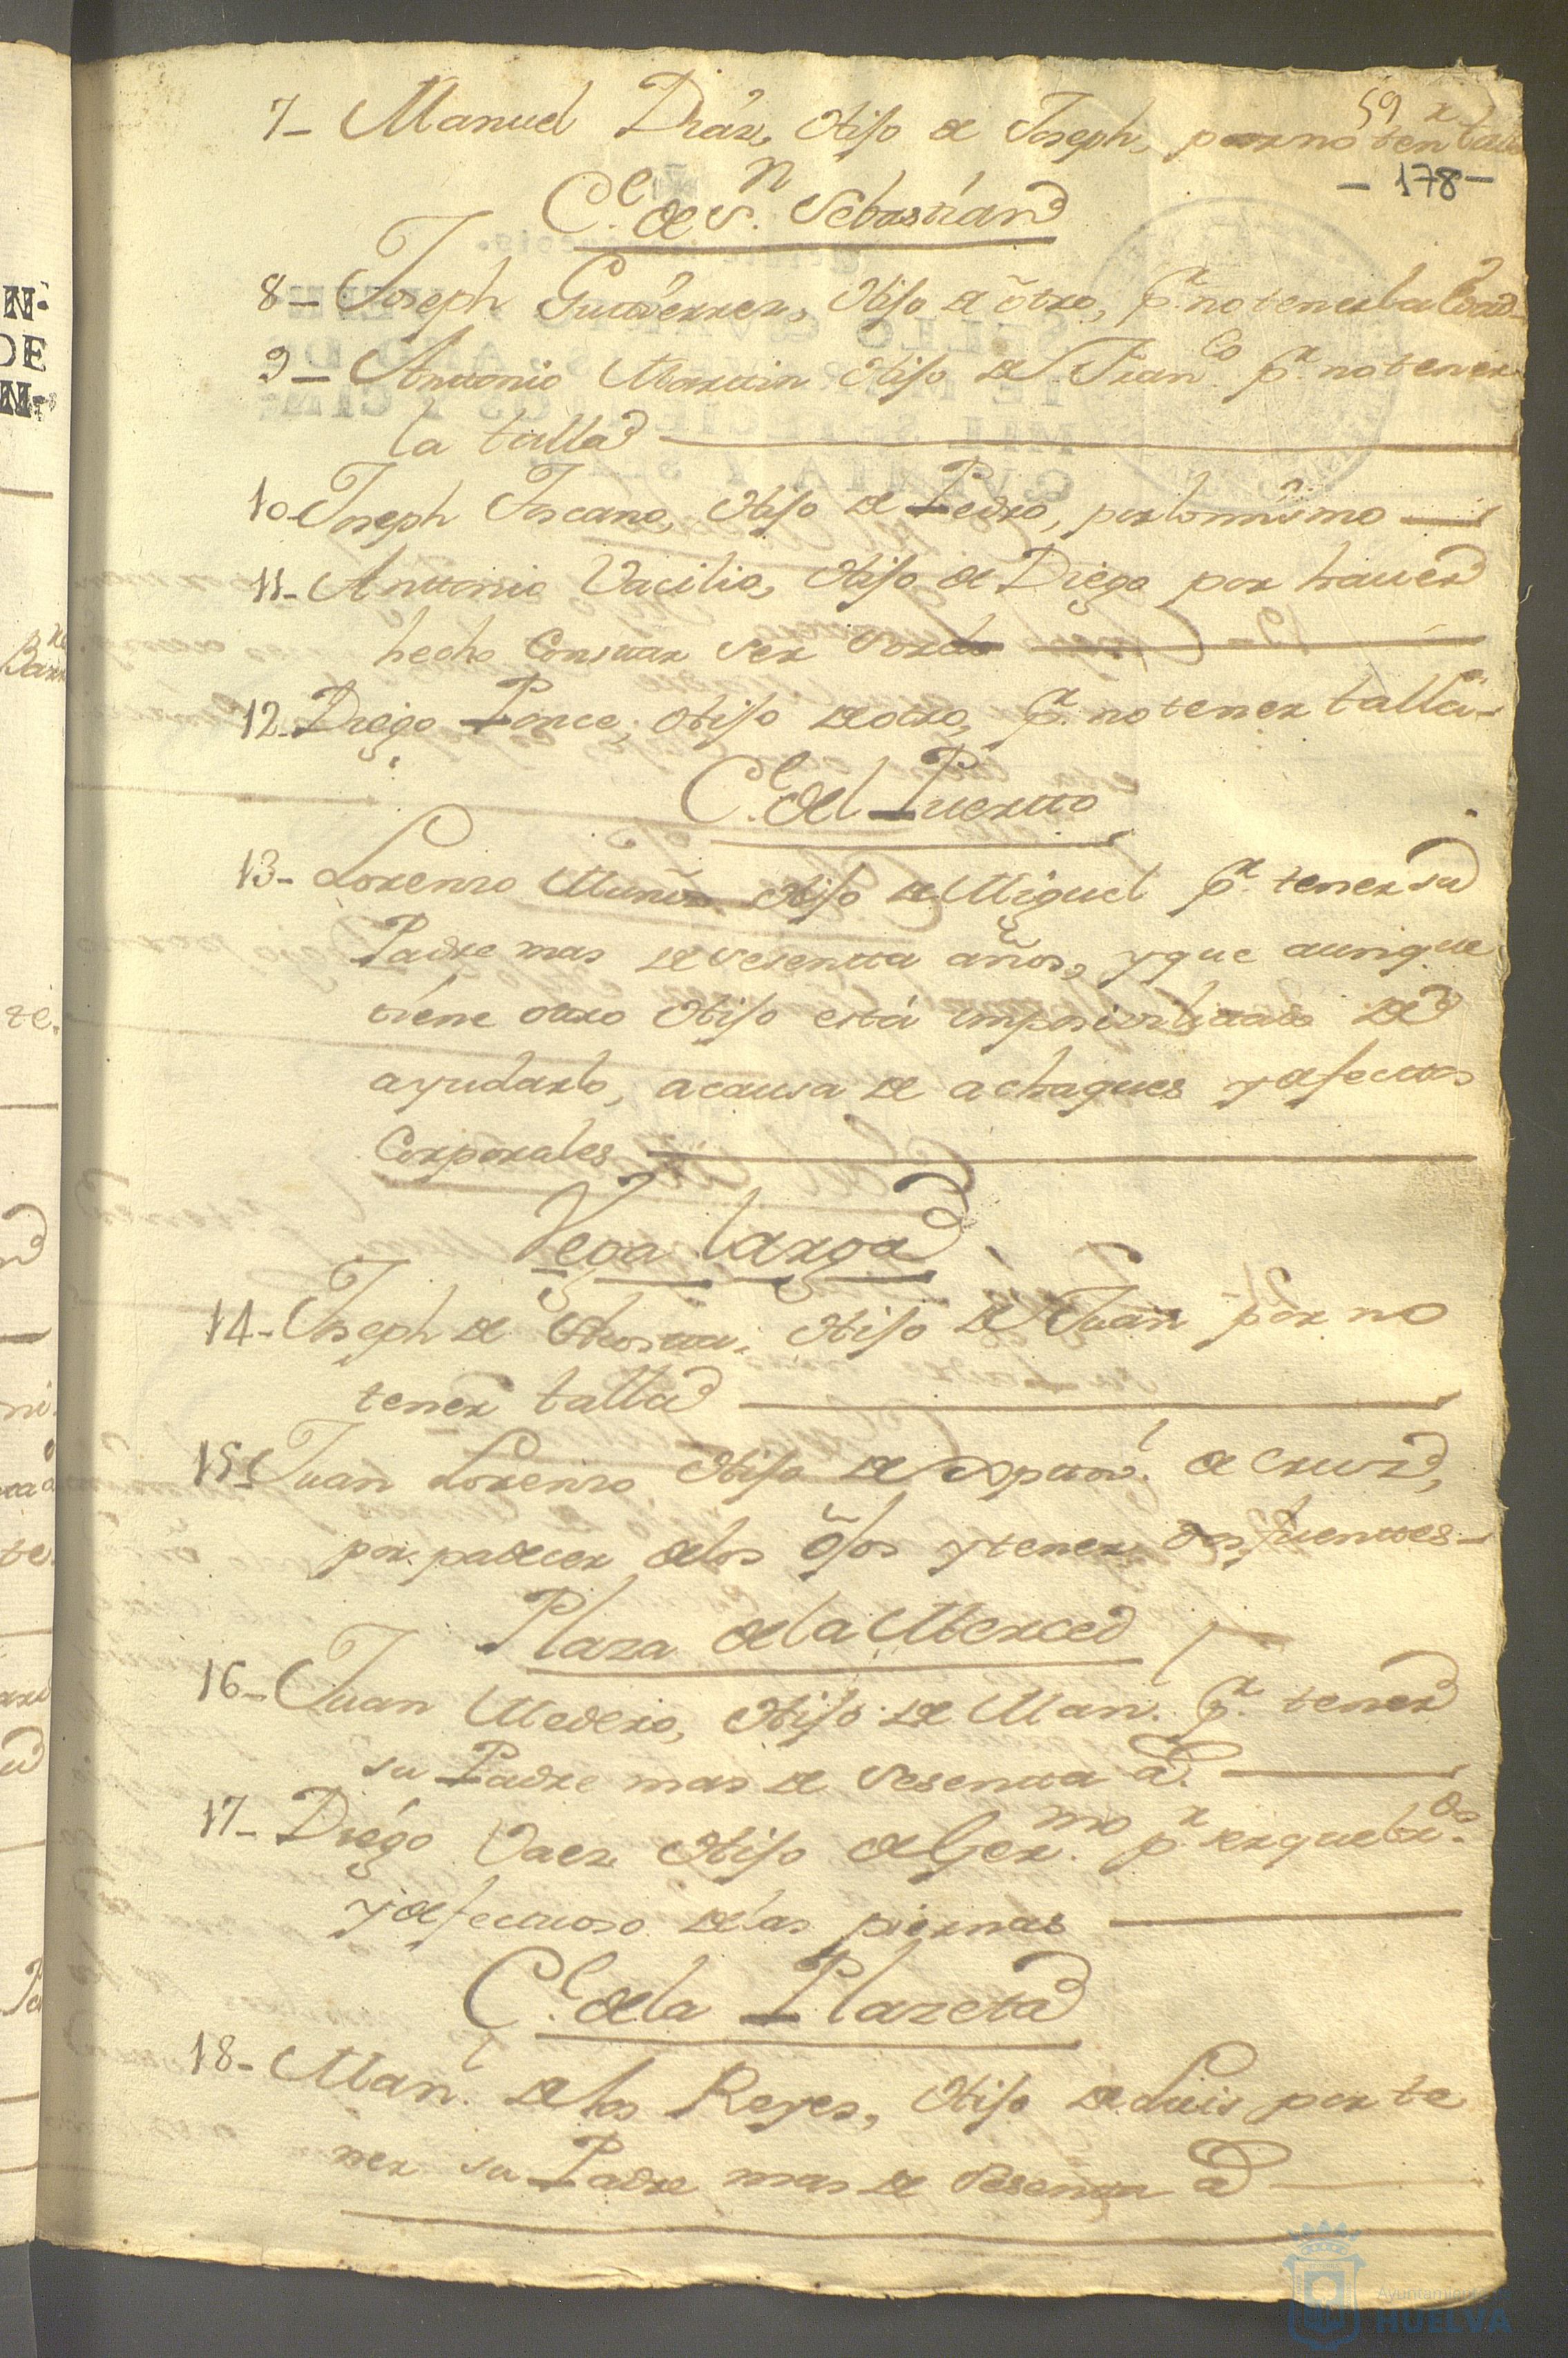 59
7- Manuel Diáz, Hijo de Joseph, por no ten.r talla
- 178 -
C.e de S.n Sebastián
8- Joseph Gutierrez, Hijo de ótro, p.r no tener la edad
9- Anttonio Marttin Hijo de Fran.co p.r no tener
la talla
10- Joseph Toscano, Hijo de Pedro, por lo mismo
11- Anttonio Vacilio, Hijo de Diego por haver
hecho Consttar ser sordo
12- Diego Ponce, Hijo de otro, p.r no tener talla-
C.e del Puertto
13- Lorenzo Muñoz Hijo de Miguel p.r tener su
Padre mas de sesentta años, y que aunque
tiene otro Hijo está imposivilitado de
ayudarlo, a causa de achaques y defecttos
Corporales
Vega larga
14- Joseph de Acostta, Hijo de Juan por no
tener talla
15- Juan Lorenzo Hijo de de Cruz,
por padecer de los ójos y tener dos fuenttes-
Plaza de la Merced
16- Juan Medero, Hijo de Man.l p.r tener
su Padre mas de sesentta a.
17- Diégo Vaez Hijo de Ger.mo p.r ser quebr.do
y defecttuoso de las piernas
C.e de la Plazeta
18- Man.l de los Reyes, Hijo de Luis por te
ner su Padre mas de sesentta a
Ayuntamiento
HUELVA